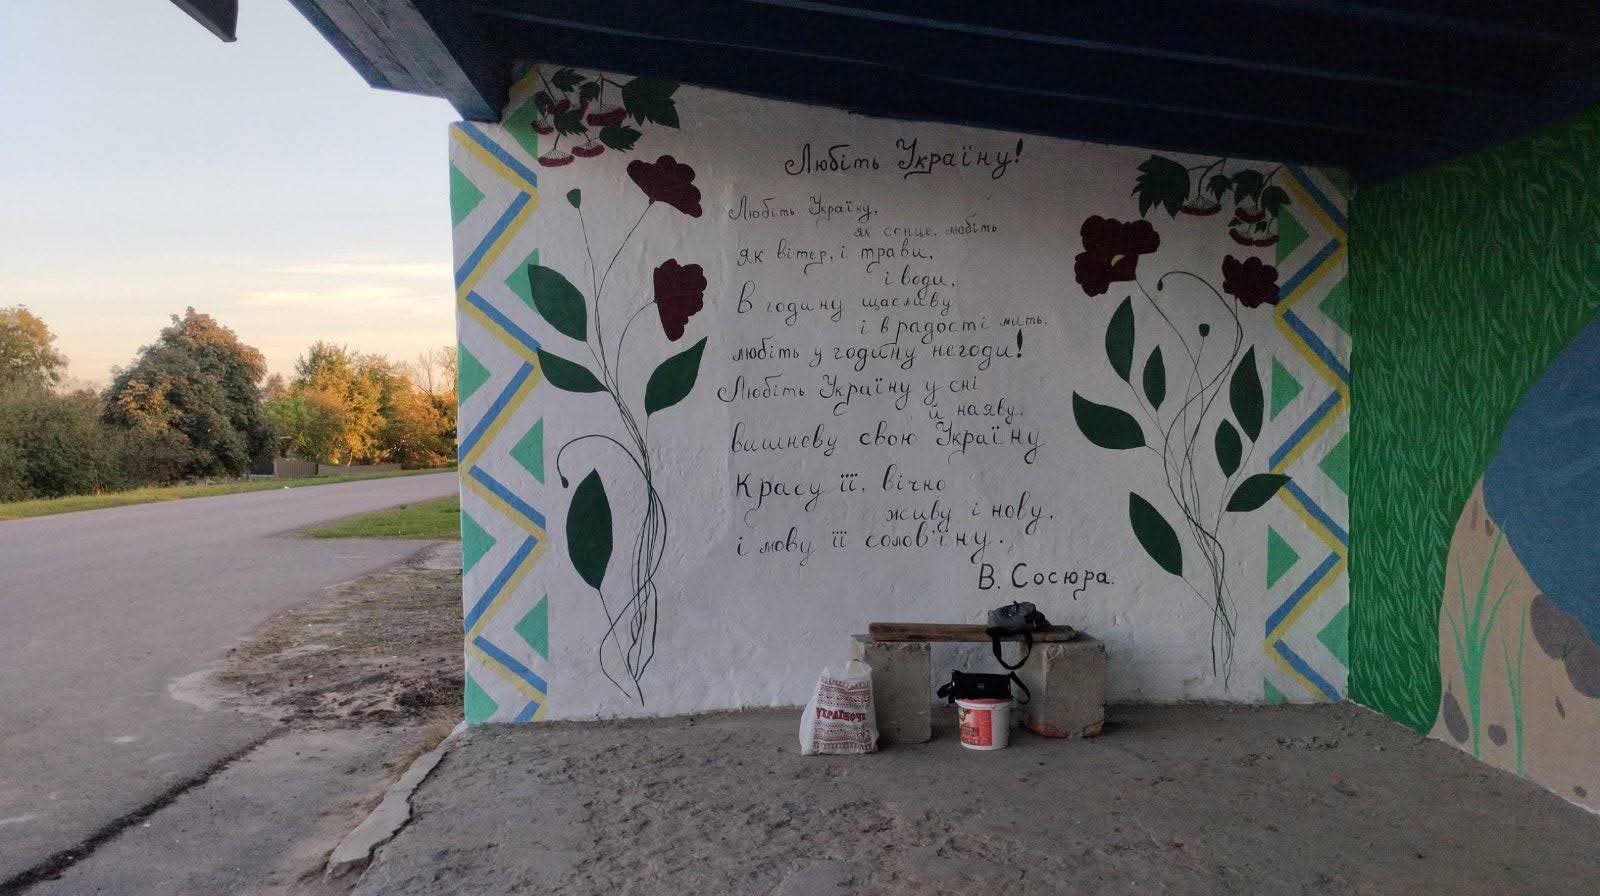 Любіть Україну!
Любіть Україну,
як сонце, любіть
як вітер, і трави,
і води,
В годину щасливу
і в радості мить,
любіть у годину негоди!
Любіть Україну у сні
й наяву,
вишневу свою Україну
Красу її, вічно
живу і нову,
і мову її солов'їну.
В. Сосюра.
УКРАЇНОЧКА